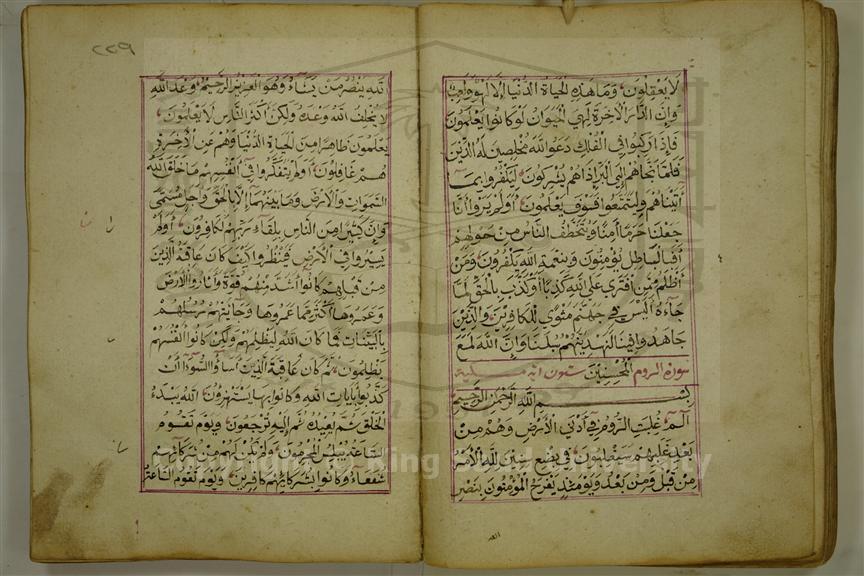 لا يعقلون وما هذه الحياة الدنيا إلا لهو ولعب
وإن الدار الآخرة لهي الحيوان لو كانوا يعلمون
فإذا ركبوا في الفلك دعوا الله مخلصين له الدين
فلما نجاهم إلى البر إذا هم يشركون ليكفروا بما
آتيناهم وليتمتعوا فسوف يعلمون أولم يروا أنا
جعلنا حرما آمنا ويتخطف الناس من حولهم
أفبالباطل يؤمنون وبنعمة الله يكفرون ومن
أظلم ممن افترى على الله كذبا أو كذب بالحق لما
جاءه أليس في جهنم مثوى للكافرين والذين
جاهدوا فينا لنهدينهم سبلنا وإن الله لمع
سورة الروم المحسنين ستون آية مكية
بسم الله الرحمن الرحيم
الم غلبت الروم في أدنى الأرض وهم من
بعد غلبهم سيغلبون في بضع سنين لله الأمر
من قبل ومن بعد ويومئذ يفرح المؤمنون بنصر
الله
٢٢٩
الله ينصر من يشاء وهو العزيز الرحيم وعد الله
لا يخلف الله وعده ولكن أكثر الناس لا يعلمون
يعلمون ظاهرا من الحياة الدنيا وهم عن الآخرة
هم غافلون أولم يتفكروا في أنفسهم ما خلق الله
السموات والأرض وما بينهما إلا بالحق وأجل مسمى
وإن كثيرا من الناس بلقاء ربهم لكافرون أولم
يسيروا في الأرض فينظروا كيف كان عاقبة الذين
من قبلهم كانوا أشد منهم قوة وأثاروا الأرض
وعمروها أكثر مما عمروها وجاءتهم رسلهم
بالبينات فما كان الله ليظلمهم ولكن كانوا أنفسهم
يظلمون ثم كان عاقبة الذين أساؤا السوأى أن
كذبوا بآيات الله وكانوا بها يستهزؤن الله يبدء
الخلق ثم يعيده ثم إليه ترجعون ويوم تقوم
الساعة يبلس المجرمون ولم يكن لهم من شركائهم
شفعاء وكانوا بشركائهم كافرين ويوم تقوم الساعة